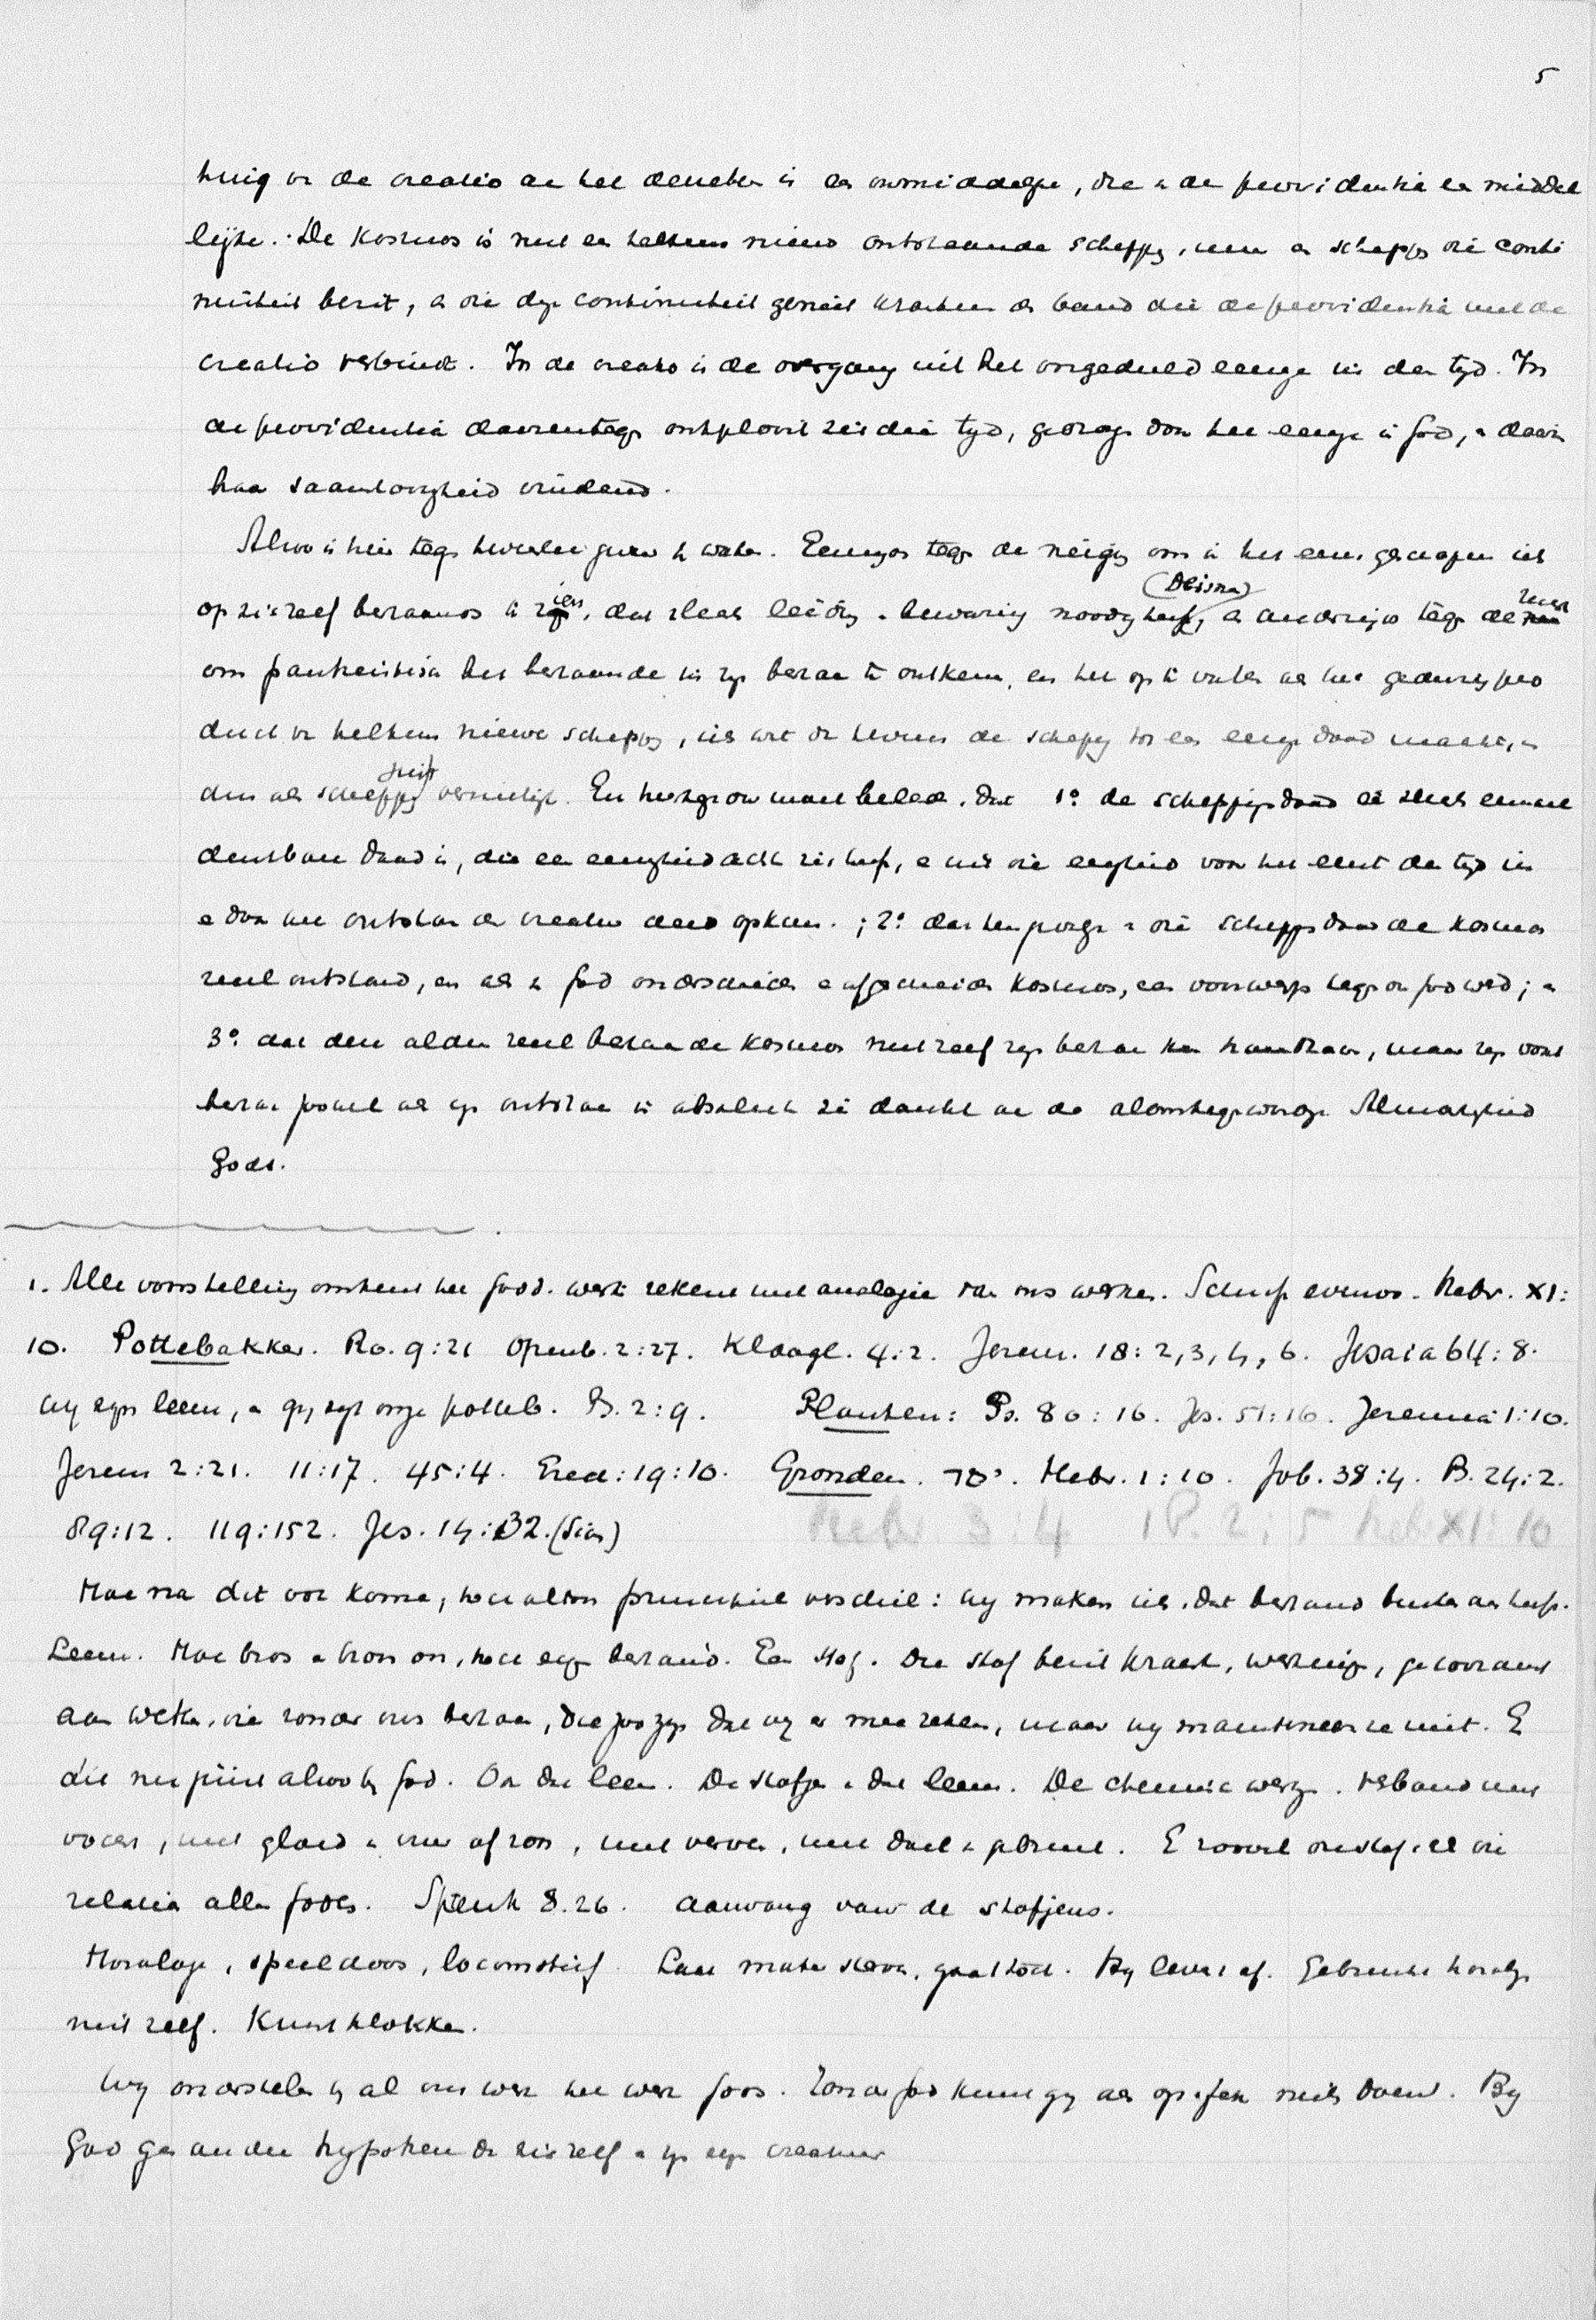 5
in de creatio een onmiddelijke, die in de providentia een middel
lijke. De Kosmos is niet een telkens nieuw ontstaande schepping, maar een schepping die conti
nuiteit bezit, en die deze continuiteit geniet krachtens den band die de providentia met de
creatio verbindt. In de creatio is de overgang uit het eeuwige in den tijd. In
de providentia daarentegen ontplooit zich die tijd, gedragen door het eeuwige in God, en daarin
haar
Alzoo is hier tegen tweeërlei gevaar te waken. Eenerzijds tegen de neiging om in het eens geschapen iets
op zichzelf bestaands te zien, dat slechts leiding en bewaring noodig heeft, (Deisme) en anderzijds tegen de
om pantheistisch het bestaande in zijn bestaan te ontkennen, en het op te vatten als het gedurig pro
duct van telkens nieuwe schepping, iets wat de schepping tot een eeuwige daad maakt, en
dus als schepping juist vernietigt. En hiertegenover moet beleden, dat 1º de scheppingsdaad een slechts eenmaal
denkbare daad is, die een eeuwigheid achter zich heeft, en uit die eeuwigheid voor het eerst den tijd in
en door het ontstaan der creatuur deed opkomen.; 2º dat ten gevolge van die scheppingsdaad de Kosmos
reeel ontstond, en als van God onderscheiden en afgescheiden Kosmos, een voorwerp tegenover God werd; en
3º dat deze aldus reeel bestaande Kosmos niet zelf zijn bestaan kan handhaven, maar zijn voort
bestaan zoowel als zijn ontstaan in absoluten zin dankt aan de alomtegenwoordige Almachtigheid
Gods.
1. Alle voorstelling omtrent het Godd. werk rekent met analogie van ons werken. Hebr. XI:
10. Pottebakker. Ro. 9:21 Openb. 2:27. Klaagl. 4:2. Jerem. 18:2,3,4,6. Jesaia 64:8.
wij zijn leem, en gij zijt onze potteb. Ps. 2:9. Planten: Ps. 80:16. Jes. 51:16. Jeremia 1:10.
Jerem 2:21. 11:17. 45:4. Ezech: 19:10. Gronden. יסד. Hebr. 1:10. Job. 38:4. Ps. 24:2.
89:12. 119:152. Jes. 14:32. (Sion) Hebr 3:4 1P. 2:5 Hebr XI:10
Maar na dit voorkomen, toch altoos principieel verschil: wij maken iets, dat bestand buiten ons heeft.
Leem. Maar bros en broos, toch eigen bestand. Een stof. Die stof bezit kracht, werking, gehoorzaamt
aan wetten, die zonder ons bestaan, die zoo zijn dat wij er mee rekenen, maar wij maintineeren ze niet. En
dit nu juist alzoo bij God. Ook dat leem. De stofjes in dat leem. De chemische werking. Verband met
water, met gloed en vuur of zon, met verven, met doel en gebruik. En zoowel die stof als die
relatie alles Gods. Spreuk 8.26. Aanvang van de stofjens.
Horologe, speeldoos, locomotief. Laat maker sterven, gaat toch. Hij levert af. Gebruikt horologe
niet zelf. Kunstklokken.
Wij onderstellen bij al ons werk het werk Gods. Zonder God kunt gij als opifex niets doen. Bij
God geen andere hypothese dan zichzelf en zijn eigen creatuur